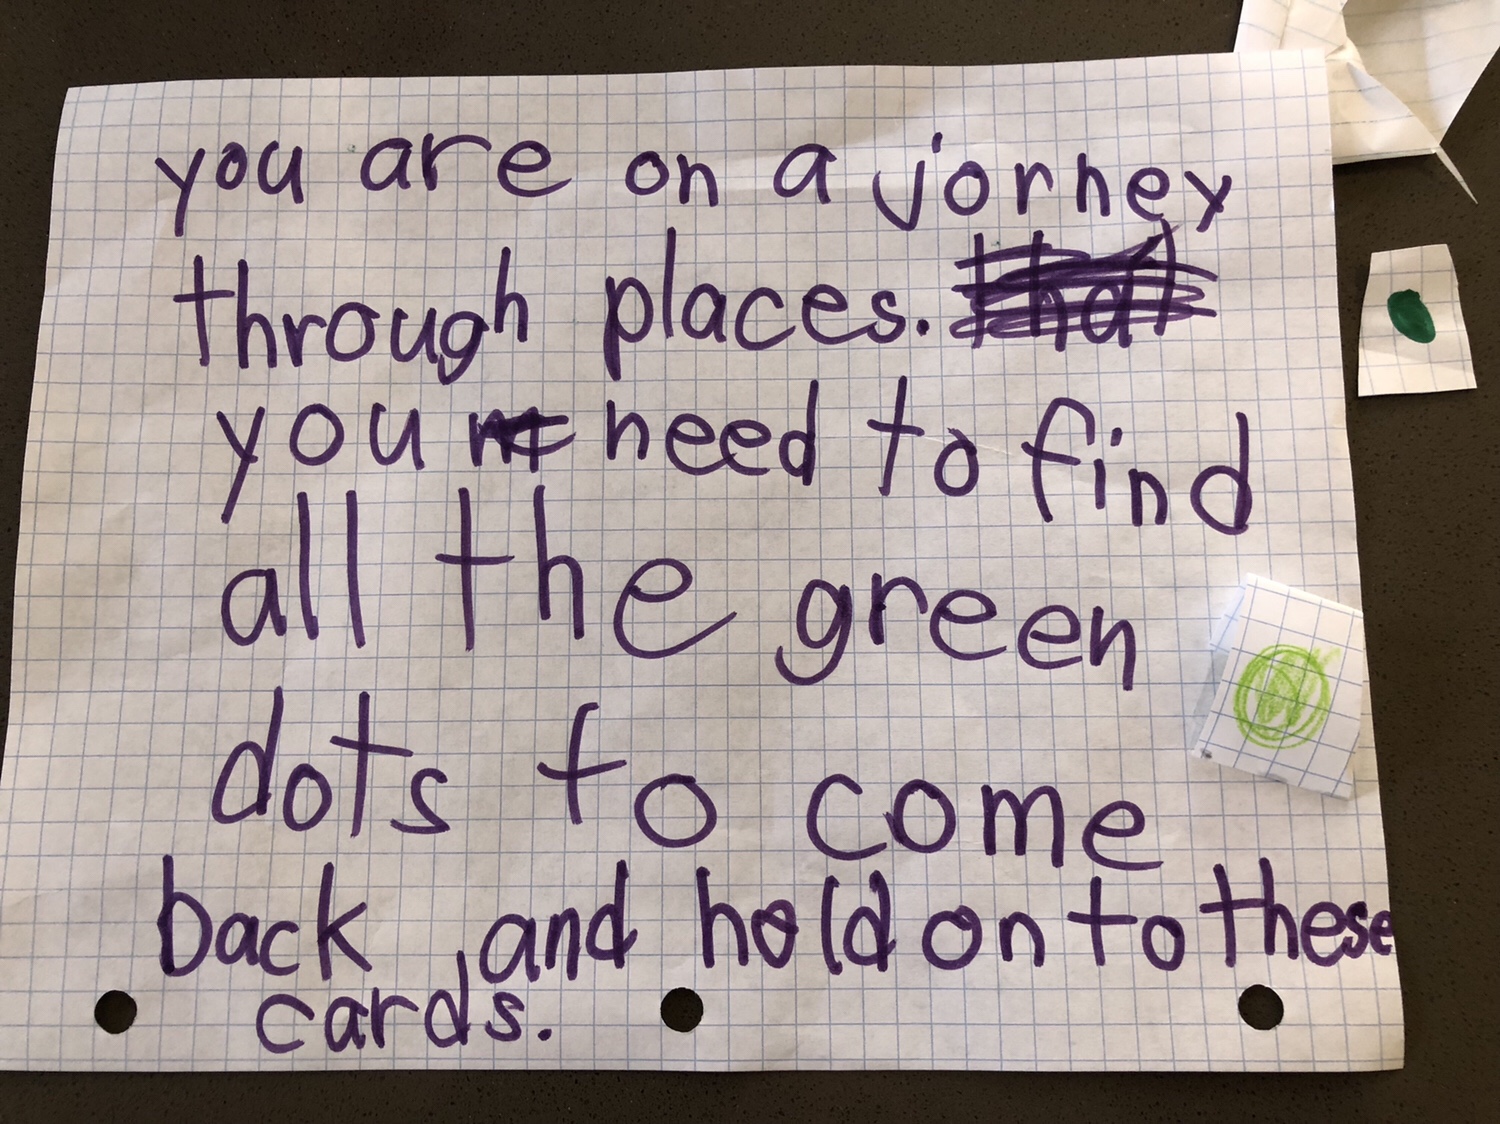 you are on a jorney
through places.
you need to find
all the green
dots to come
back, and hold on to these
cards.